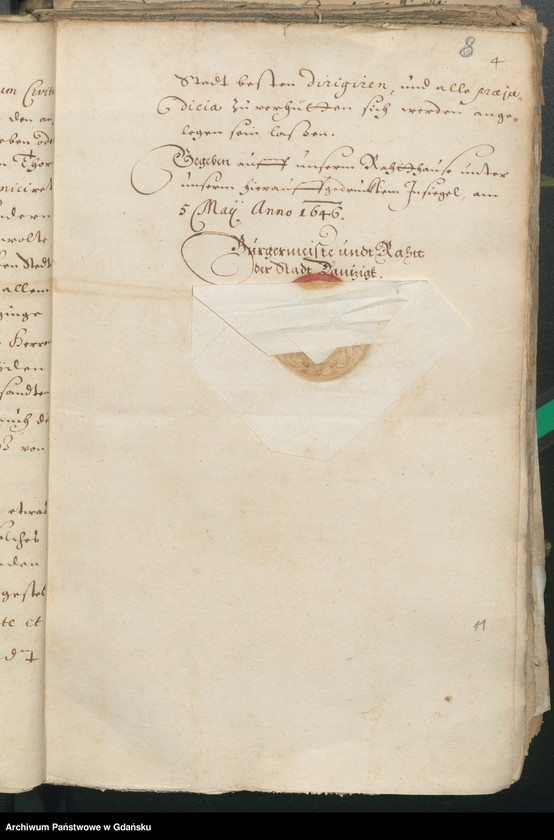 8
4
Stadt besten dirigiren, und alle præju-
dicia zu verhütten sich werden ange-
legen sein laßen.
Gegeben auff unserm Rahthause unter
unserm hierauff gedrucktem Insiegel, am
5 Maÿ Anno 1646.
Bürgermeistere undt Raht
der Stadt Dantzigk.
11
um Civit
den an
eben
n Thor
niciret
ndern
allem
ginge
Herrn
sandten
auch di
von
etwas
olches
nden
gestel
te et
Archiwum Państwowe w Gdańsku